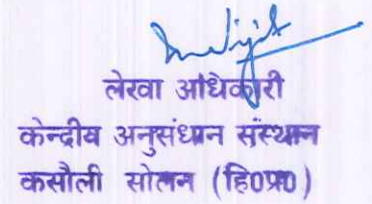 लेखा अधिकारी
केन्द्रीय अनुसंधान संस्थान
कसौली सोलन (हि0प्र0)